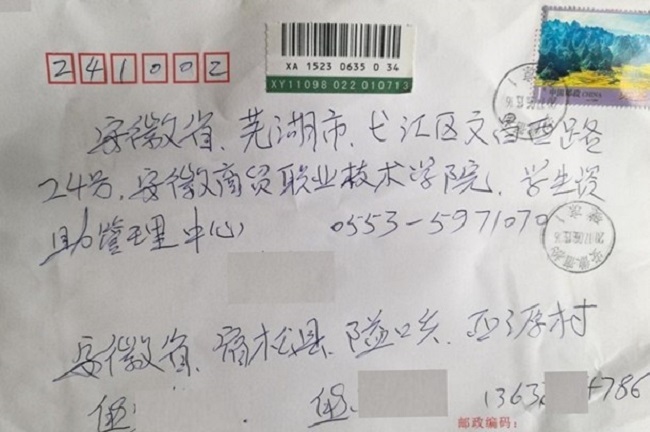 XA 1523 0635 0 34
XY11098 022 010713
241002
中国邮政 CHINA
安徽省、芜湖市、弋江区文昌西路
24号、安徽商贸职业技术学院、学生资
助管理中心 0553-5971070
安徽省、宿松县、隘口乡、
1363 4786
邮政编码：